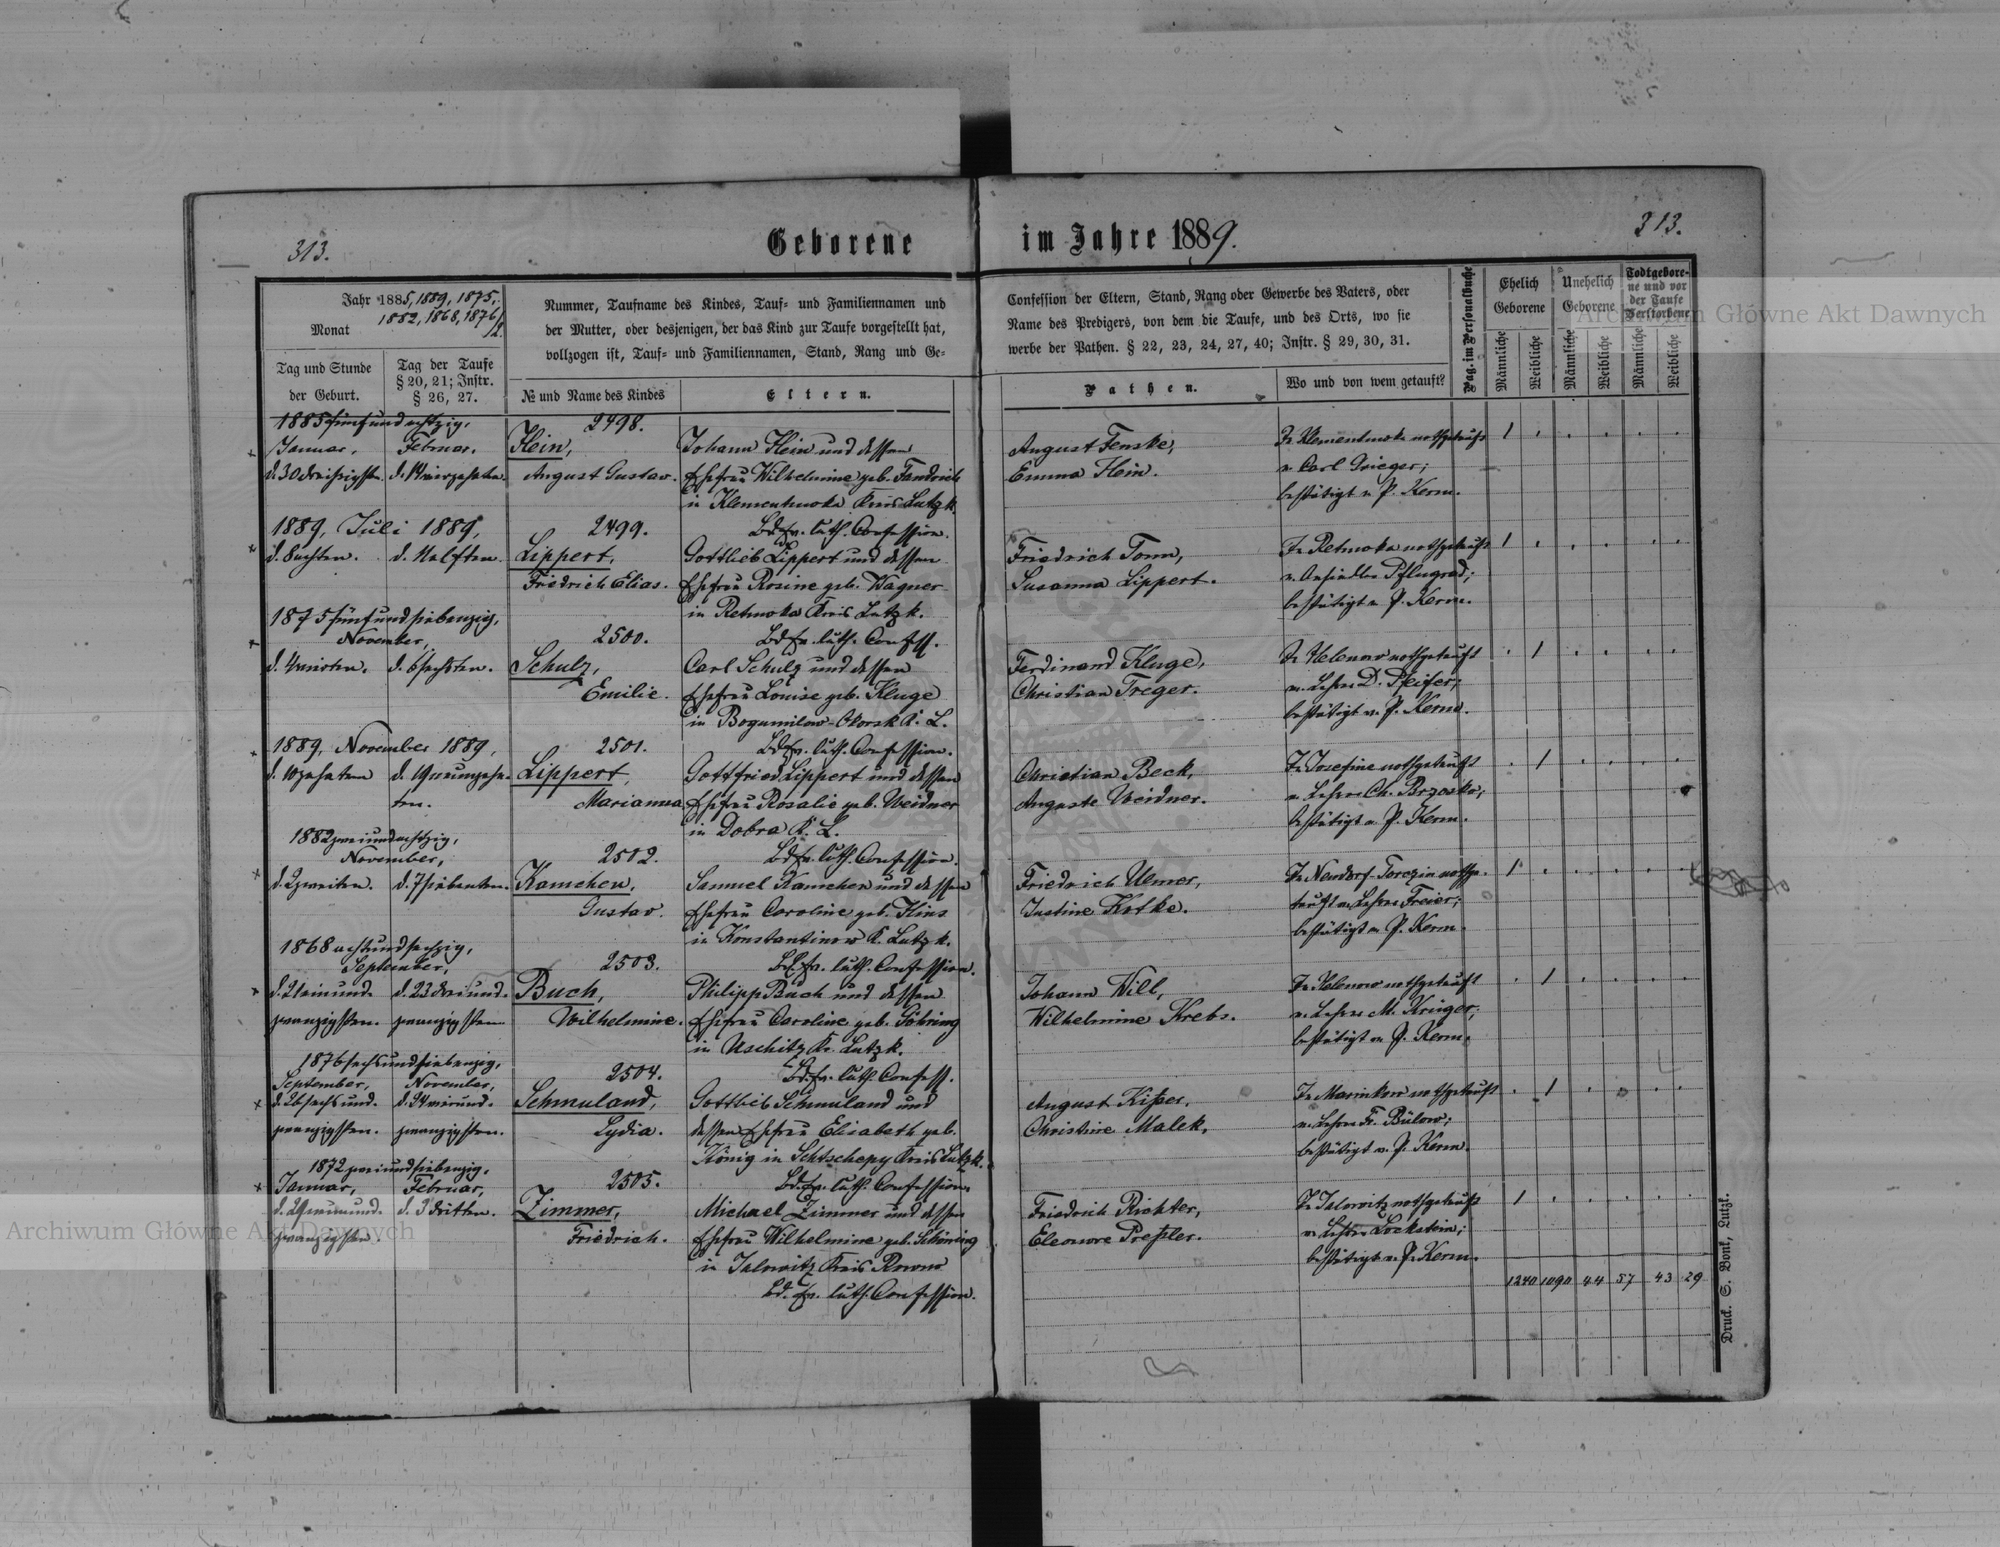 313.
Geborene
im Jahre 1889.
313.
Jahr 1885, 1889, 1875,
1882, 1868, 1876,
Monat
Tag und Stunde
der Geburt.
Tag der Taufe
§ 20, 21; Instr.
§ 26, 27.
Nummer, Taufname des Kindes, Tauf- und Familiennamen und
der Mutter, oder desjenigen, der das Kind zur Taufe vorgestellt hat,
vollzogen ist, Tauf- und Familiennamen, Stand, Rang und Ge-
№ und Name des Kindes
Eltern.
Confession der Eltern, Stand, Rang oder Gewerbe des Vaters, oder
Name des Predigers, von dem die Taufe, und des Orts, wo sie
werbe der Pathen. § 22, 23, 24, 27, 40; Instr. § 29, 30, 31.
Pathen.
Wo und von wem getauft?
Pag. im Personalbuche
Ehelich
Geborene
Unehelich
Geborene
Todtgebore-
ne und vor
der Taufe
Verstorbene
Männliche
Weibliche
Männliche
Weibliche
Männliche
Weibliche
1885 fünfundachtzig,
Januar, Februar,
d. 30 dreißigsten. d. 14 vierzehnten.
2498.
Hein,
August Gustav.
Johann Hein und dessen
Ehefrau Wilhelmine geb. Fandrich
in Klementinowka Kreis Lutzk.
Bd. ev. luth. Confession.
August Fenske,
Emma Hein.
In Klementinowka nothgetauft
v. Carl Grieger;
bestätigt v. P. Kerm.
1
1889, Juli 1889,
d. 8 achten. d. 11 elften.
2499.
Lippert,
Friedrich Elias.
Gottlieb Lippert und dessen
Ehefrau Rosine geb. Wagner
in Retnowka Kreis Lutzk.
Bd. ev. luth. Confess.
Friedrich Tonn,
Susanna Lippert.
In Retnowka nothgetauft
v. Ansiedler Pflugrad;
bestätigt v. P. Kerm.
1
1875 fünfundsiebenzig,
November,
d. 4 vierten. d. 6 sechsten.
2500.
Schulz,
Emilie.
Carl Schulz und dessen
Ehefrau Louise geb. Kluge
in Bogumilow-Okorsk K. L.
Bd. ev. luth. Confession.
Ferdinand Kluge,
Christian Treger.
In Helenow nothgetauft
v. Lehrer D. Pfeifer;
bestätigt v. P. Kerm.
1
1889, November 1889,
d. 10 zehnten d. 19 neunzehn-
ten.
2501.
Lippert,
Marianna
Gottfried Lippert und dessen
Ehefrau Rosalie geb. Weidner
in Dobra K. L.
Bd. ev. luth. Confession.
Christian Beck,
Auguste Weidner.
In Josefine nothgetauft
v. Lehrer Ch. Brzosko;
bestätigt v. P. Kerm.
1
1882 zweiundachtzig,
November,
d. 2 zweiten. d. 7 siebenten.
2502.
Kamchen,
Gustav.
Samuel Kamchen und dessen
Ehefrau Caroline geb. Hins
in Konstantinow K. Lutzk.
Bd. ev. luth. Confession.
Friedrich Ulmer,
Justine Kotke.
In Neudorf-Torczin nothge-
tauft v. Lehrer Freier;
bestätigt v. P. Kerm.
1
1868 achtundsechzig,
September,
d. 21 einund- d. 23 dreiund-
zwanzigsten. zwanzigsten
2503.
Buch,
Wilhelmine.
Philipp Buch und dessen
Ehefrau Caroline geb. Göhring
in Uschitz Kr. Lutzk.
Bd. ev. luth. Confess.
Johann Will,
Wilhelmine Krebs.
In Helenow nothgetauft
v. Lehrer M. Krüger;
bestätigt v. P. Kerm.
1
1876 sechsundsiebenzig,
September, November,
d. 26 sechsund- d. 24 vierund-
zwanzigsten. zwanzigsten.
2504.
Schmuland,
Lydia.
Gottlieb Schmuland und
dessen Ehefrau Elisabeth geb.
König in Schtschepy Kreis Lutzk.
Bd. ev. luth. Confession.
August Kißer,
Christine Malek,
In Marinkow nothgetauft
v. Lehrer Fr. Bülow;
bestätigt v. P. Kerm.
1
1872 zweiundsiebenzig,
Januar, Februar,
d. 29 neunund- d. 3 dritten.
zwanzigsten.
2505.
Zimmer,
Friedrich.
Michael Zimmer und dessen
Ehefrau Wilhelmine geb. Schöning
in Jalowitz Kreis Rowno
Bd. ev. luth. Confession.
Friedrich Richter,
Eleonore Preßler.
In Jalowitz nothgetauft
v. Lehrer Lockstein;
bestätigt v. P. Kerm.
1
1240 1090 44 57 43 29
Druck. S. Bonk, Lutzk.
Archiwum Główne Akt Dawnych
Archiwum Główne Akt Dawnych